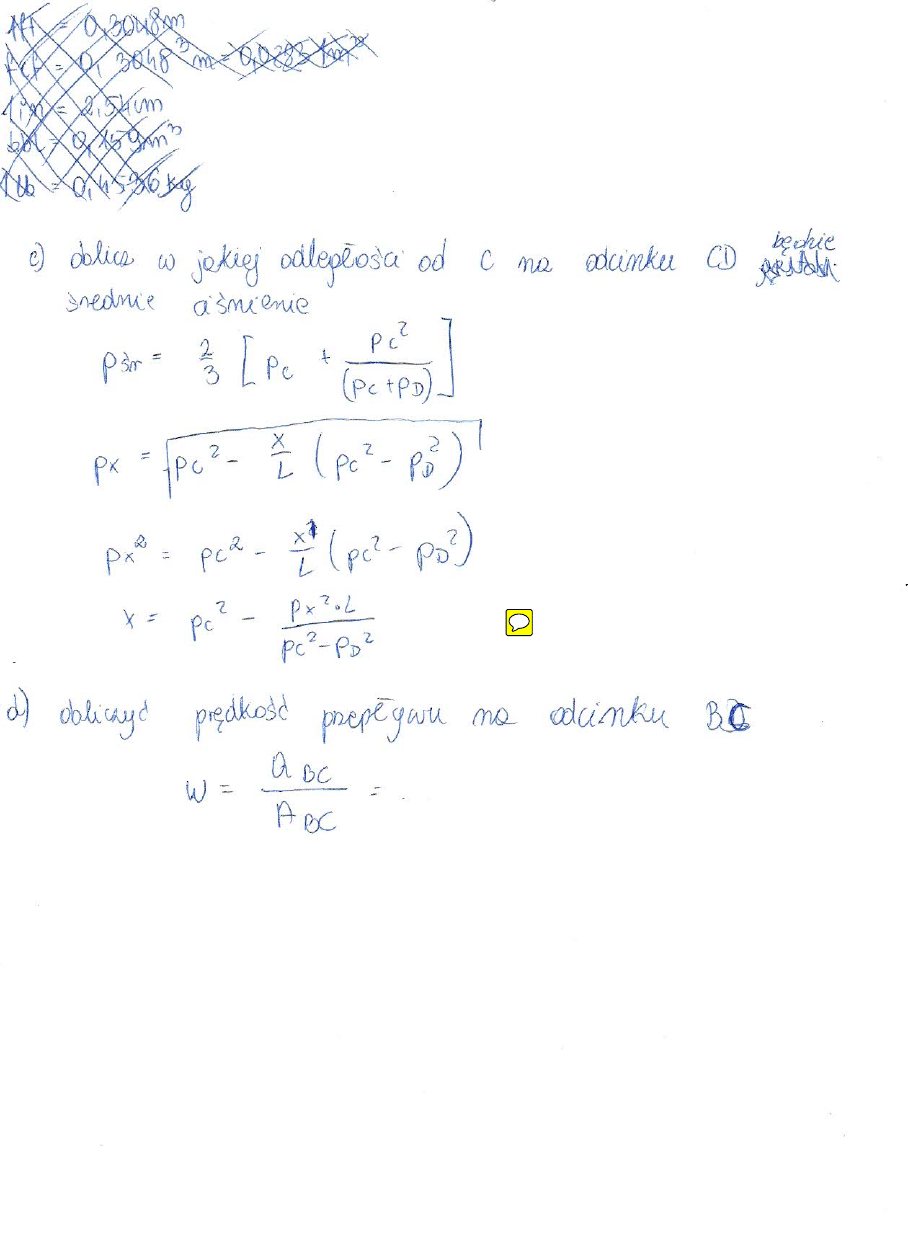 1ft = 0,3048m
1cf = 0,3048³m = 0,02831m³
1in = 2,54cm
bbl = 0,159m³
1lb = 0,4536 kg
c) oblicz w jakiej odległości od C na odcinku CD będzie
średnie ciśnienie
pśr = 2/3 [pc + pc²/(pc+pD)]
px = √(pc² - x/L (pc² - pD²))
px² = pc² - x/L (pc² - pD²)
x = pc² - px²·L/(pc²-pD²)
d) obliczyć prędkość przepływu na odcinku BC
W = QBC/ABC =